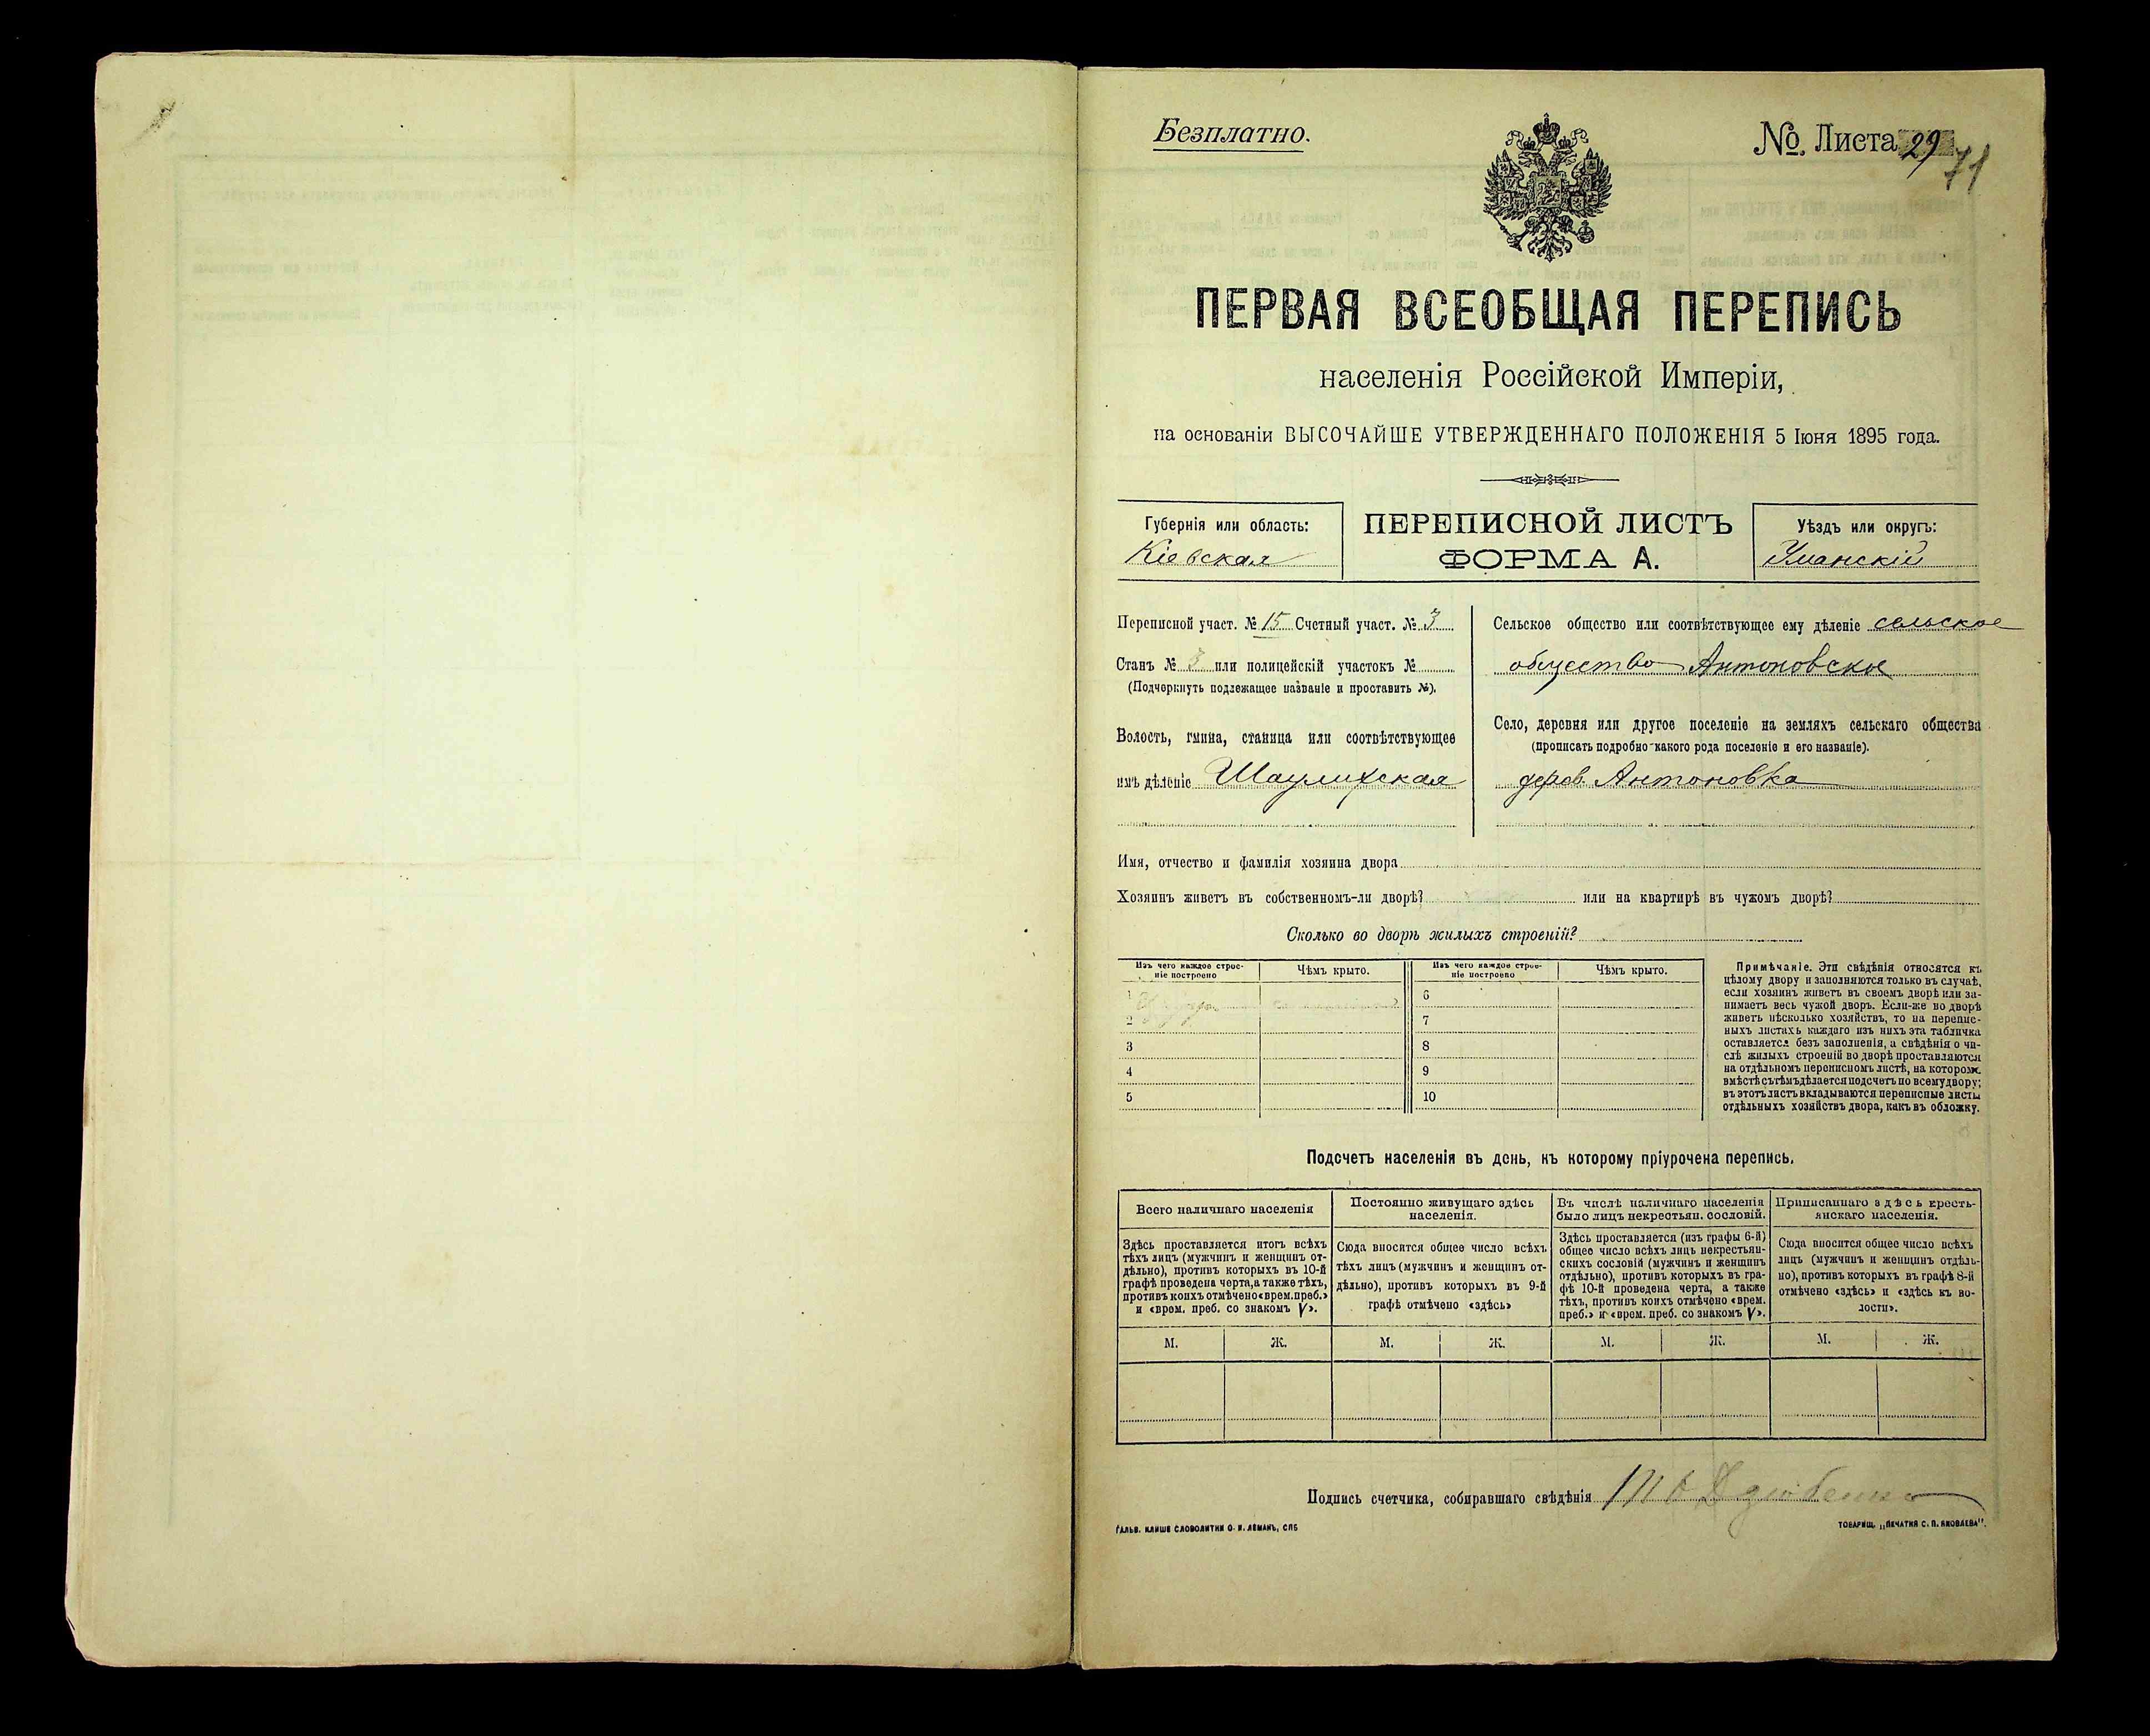 Безплатно.
№. Листа 29
71
ПЕРВАЯ ВСЕОБЩАЯ ПЕРЕПИСЬ
населенія Россійской Имперіи,
на основаніи ВЫСОЧАЙШЕ УТВЕРЖДЕННАГО ПОЛОЖЕНІЯ 5 Іюня 1895 года.
Губернія или область:
Кіевская
ПЕРЕПИСНОЙ ЛИСТЪ
ФОРМА А.
Уѣздъ или округъ:
Уманскій
Переписной участ. № 15 Счетный участ. № 3
Станъ № 3 или полицейскій участокъ №
(Подчеркнуть подлежащее названіе и проставить №).
Волость, гмина, станица или соотвѣтствующее
имъ дѣленіе Шаулихская
Сельское общество или соотвѣтствующее ему дѣленіе сельское
общество Антоновское
Село, деревня или другое поселеніе на земляхъ сельскаго общества
(прописать подробно какого рода поселеніе и его названіе).
дерев. Антоновка
Имя, отчество и фамилія хозяина двора
Хозяинъ живетъ въ собственномъ-ли дворѣ? или на квартирѣ въ чужомъ дворѣ?
Сколько во дворѣ жилыхъ строеній?
Изъ чего каждое строе-
ніе построено
Чѣмъ крыто.
Изъ чего каждое строе-
ніе построено
Чѣмъ крыто.
1
2
3
4
5
6
7
8
9
10
Примѣчаніе. Эти свѣдѣнія относятся къ
цѣлому двору и заполняются только въ случаѣ,
если хозяинъ живетъ въ своемъ дворѣ или за-
нимаетъ весь чужой дворъ. Если-же во дворѣ
живетъ нѣсколько хозяйствъ, то на перепис-
ныхъ листахъ каждаго изъ нихъ эта табличка
оставляется безъ заполненія, а свѣдѣнія о чи-
слѣ жилыхъ строеній во дворѣ проставляются
на отдѣльномъ переписномъ листѣ, на которомъ
вмѣстѣ съ тѣмъ дѣлается подсчетъ по всему двору;
въ этотъ листъ вкладываются переписные листы
отдѣльныхъ хозяйствъ двора, какъ въ обложку.
Подсчетъ населенія въ день, къ которому пріурочена перепись.
Всего наличнаго населенія
Здѣсь проставляется итогъ всѣхъ
тѣхъ лицъ (мужчинъ и женщинъ от-
дѣльно), противъ которыхъ въ 10-й
графѣ проведена черта, а также тѣхъ,
противъ коихъ отмѣчено «врем. преб.»
и «врем. преб. со знакомъ V».
Постоянно живущаго здѣсь
населенія.
Сюда вносится общее число всѣхъ
тѣхъ лицъ (мужчинъ и женщинъ от-
дѣльно), противъ которыхъ въ 9-й
графѣ отмѣчено «здѣсь»
Въ числѣ наличнаго населенія
было лицъ некрестьян. сословій.
Здѣсь проставляется (изъ графы 6-й)
общее число всѣхъ лицъ некрестьян-
скихъ сословій (мужчинъ и женщинъ
отдѣльно), противъ которыхъ въ гра-
фѣ 10-й проведена черта, а также
тѣхъ, противъ коихъ отмѣчено «врем.
преб.» и «врем. преб. со знакомъ V».
Приписаннаго здѣсь кресть-
янскаго населенія.
Сюда вносится общее число всѣхъ
лицъ (мужчинъ и женщинъ отдѣль-
но), противъ которыхъ въ графѣ 8-й
отмѣчено «здѣсь» и «здѣсь къ во-
лости».
М. Ж. М. Ж. М. Ж. М. Ж.
Подпись счетчика, собиравшаго свѣдѣнія
ГАЛЬВ. КЛИШЕ СЛОВОЛИТНИ О. И. ЛЕМАНЪ, СПБ
ТОВАРИЩ. „ПЕЧАТНЯ С. П. ЯКОВЛЕВА".